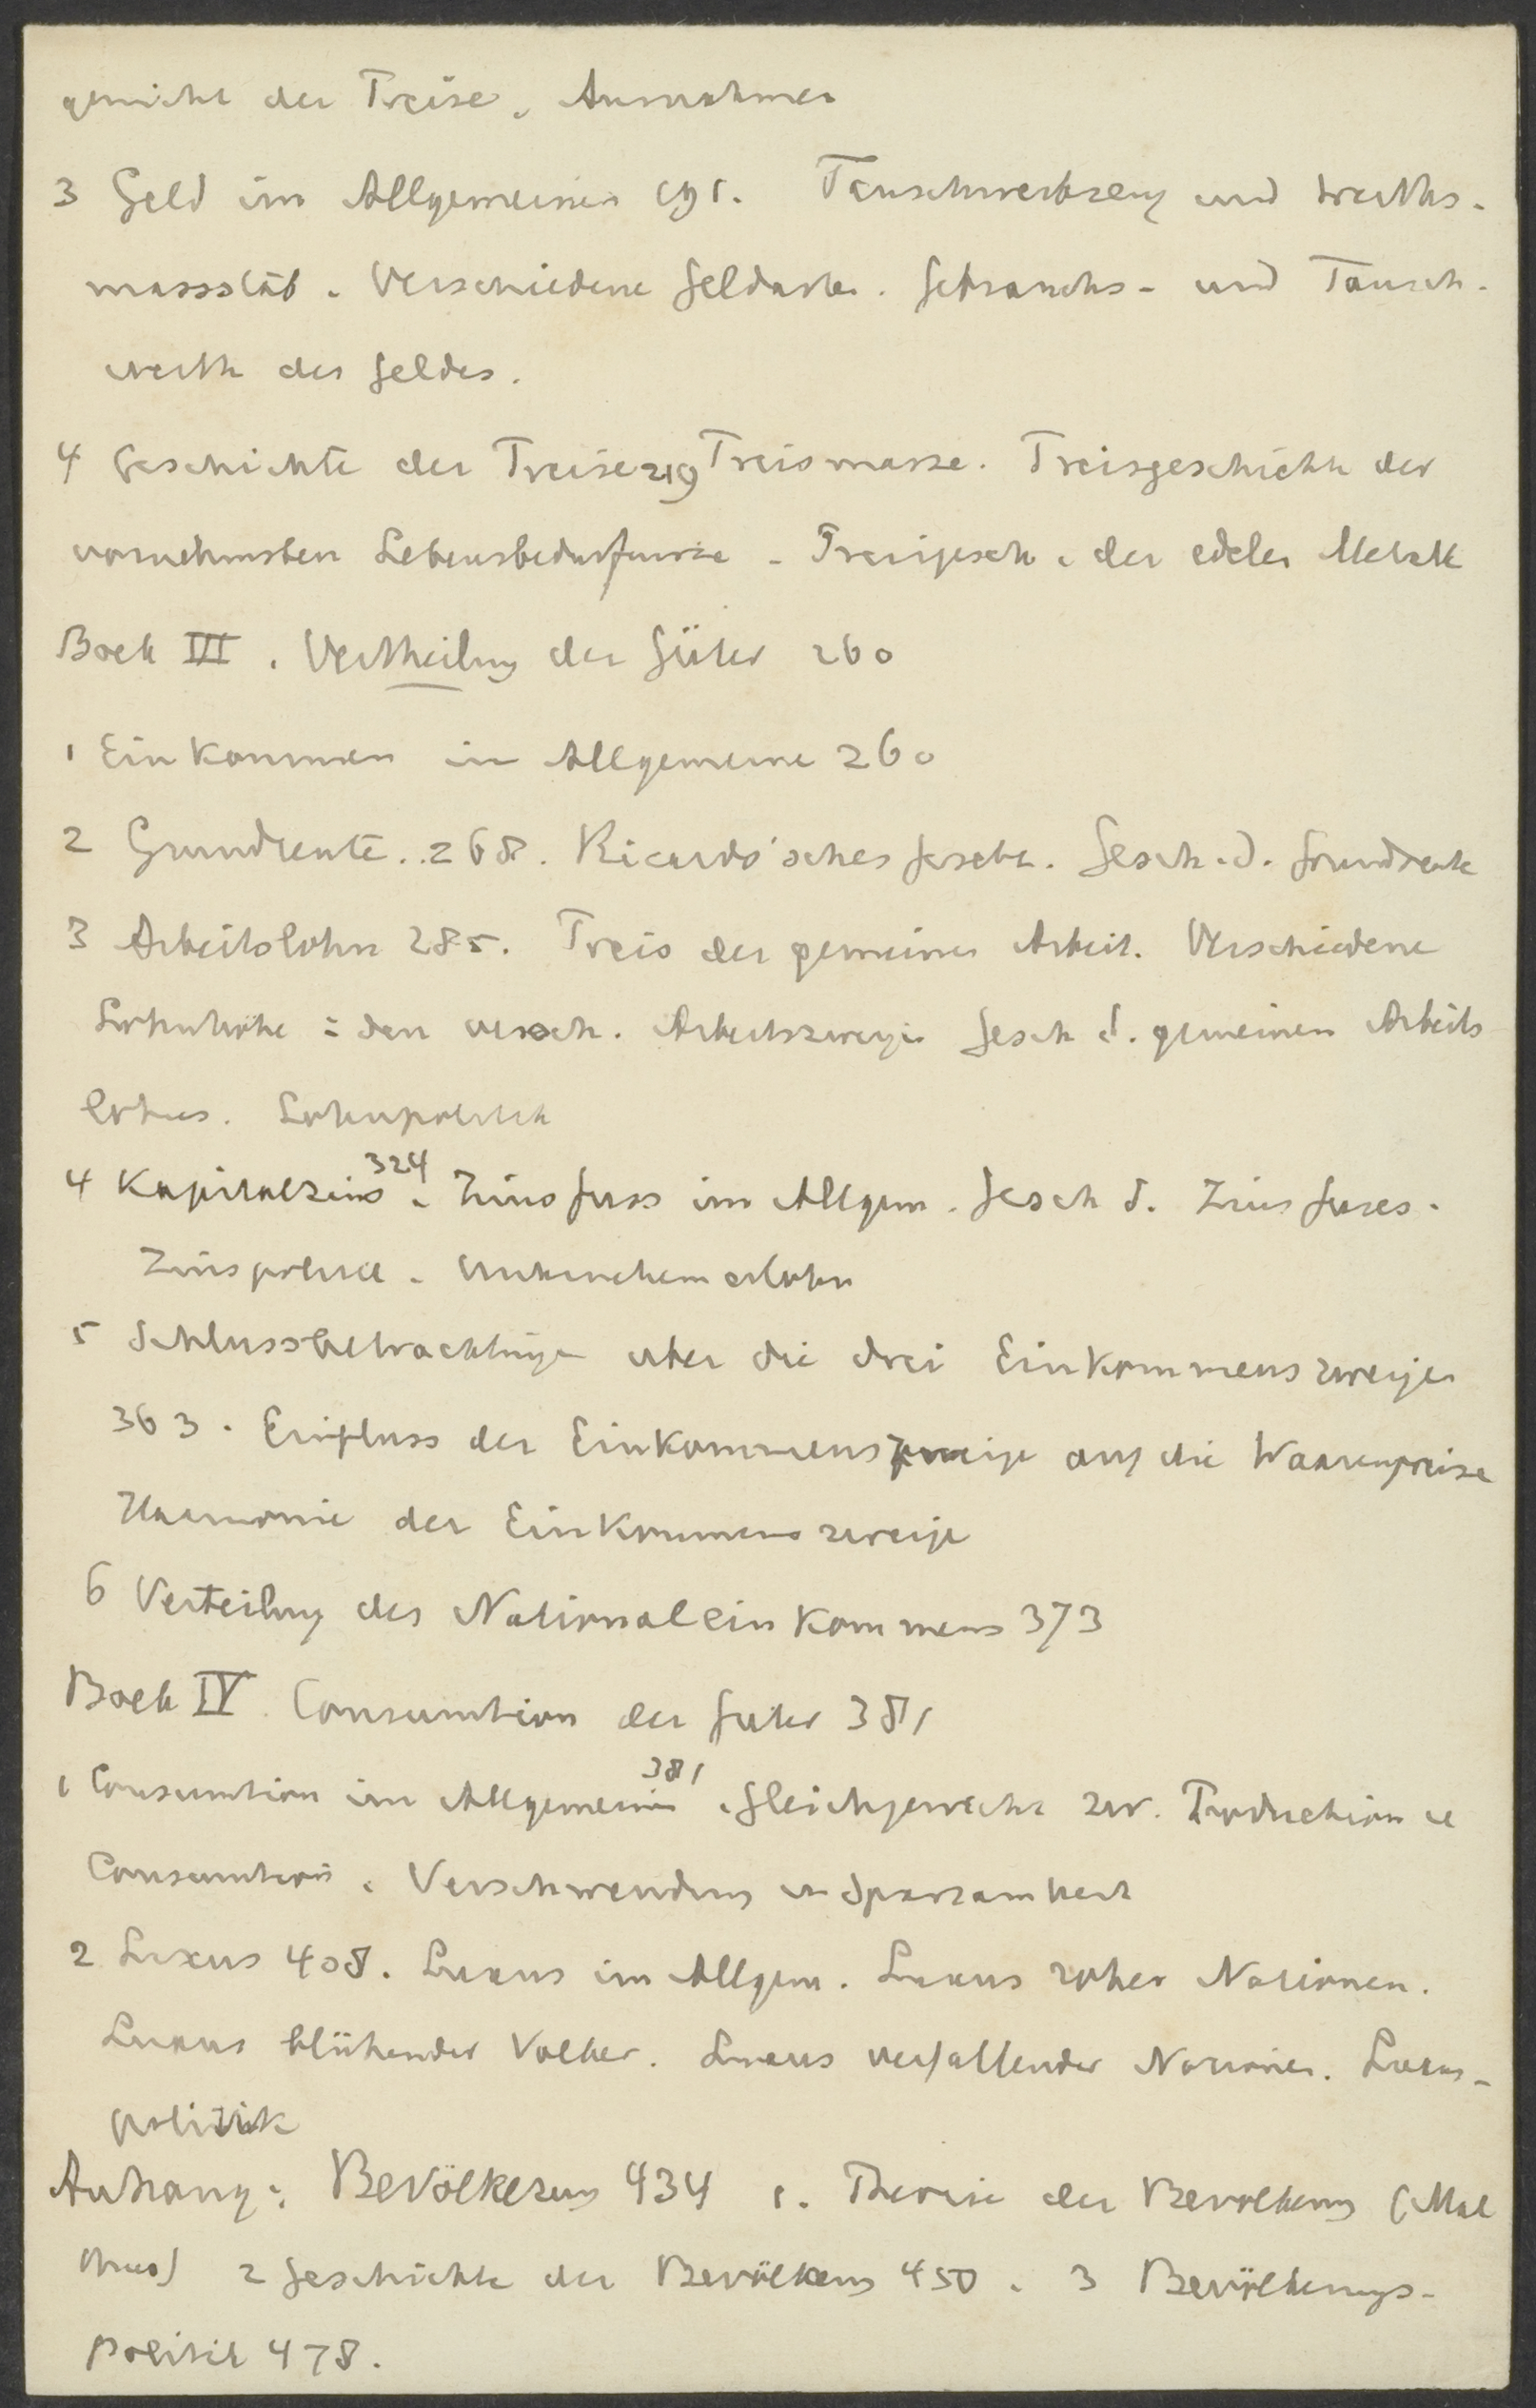 gewicht der Preise. Ausnahmen
3 Geld im Allgemeinen 191. Tauschwerkzeug und Werths-
massstab. Verschiedene Geldarten. Gebrauchs- und Tausch-
werth des Geldes.
4 Geschichte der Preise 219 Preismasse. Preisgeschichte der
vornehmsten Lebensbedurfnisse - Preisgesch. der edelen Metalle
Boek III. Vertheilung der Güter 260
1 Einkommen im Allgemeine 260
2 Grundrente. 268. Ricardo'sches Gesetz. Gesch. d. Grundrente
3 Arbeitslohn 285. Preis der gemeinen Arbeit. Verschiedene
Lohnhöhe i den versch. Arbeitszweigen Gesch d. gemeinen Arbeits
lohnes. Lohnpolitik
4 Kapitalzins 324. Zinsfuss im Allgem. Gesch d. Zinsfuses.
Zinspolitik. Unternehmerlohn
5 Schlussbetrachtungen uber die drei Einkommenszweigen
363. Einfluss der Einkommenszweige auf die Waarenpreise
Harmonie der Einkommenszweige
6 Verteilung des Nationaleinkommens 373
Boek IV. Consumtion der Guter 381
1 Consumtion im Allgemeinen 381. Gleichgewicht zw. Production u
Consumtion. Verschwendung u Sparsamkeit
2 Luxus 408. Luxus im Allgem. Luxus roher Nationen.
Luxus blühender Volker. Luxus verfallender Nationen. Luxus-
politik
Anhang: Bevölkerung 434 1. Theorie der Bevolkerung (Mal
thus) 2 Geschichte der Bevölkerung 450. 3 Bevölkerungs-
politik 478.